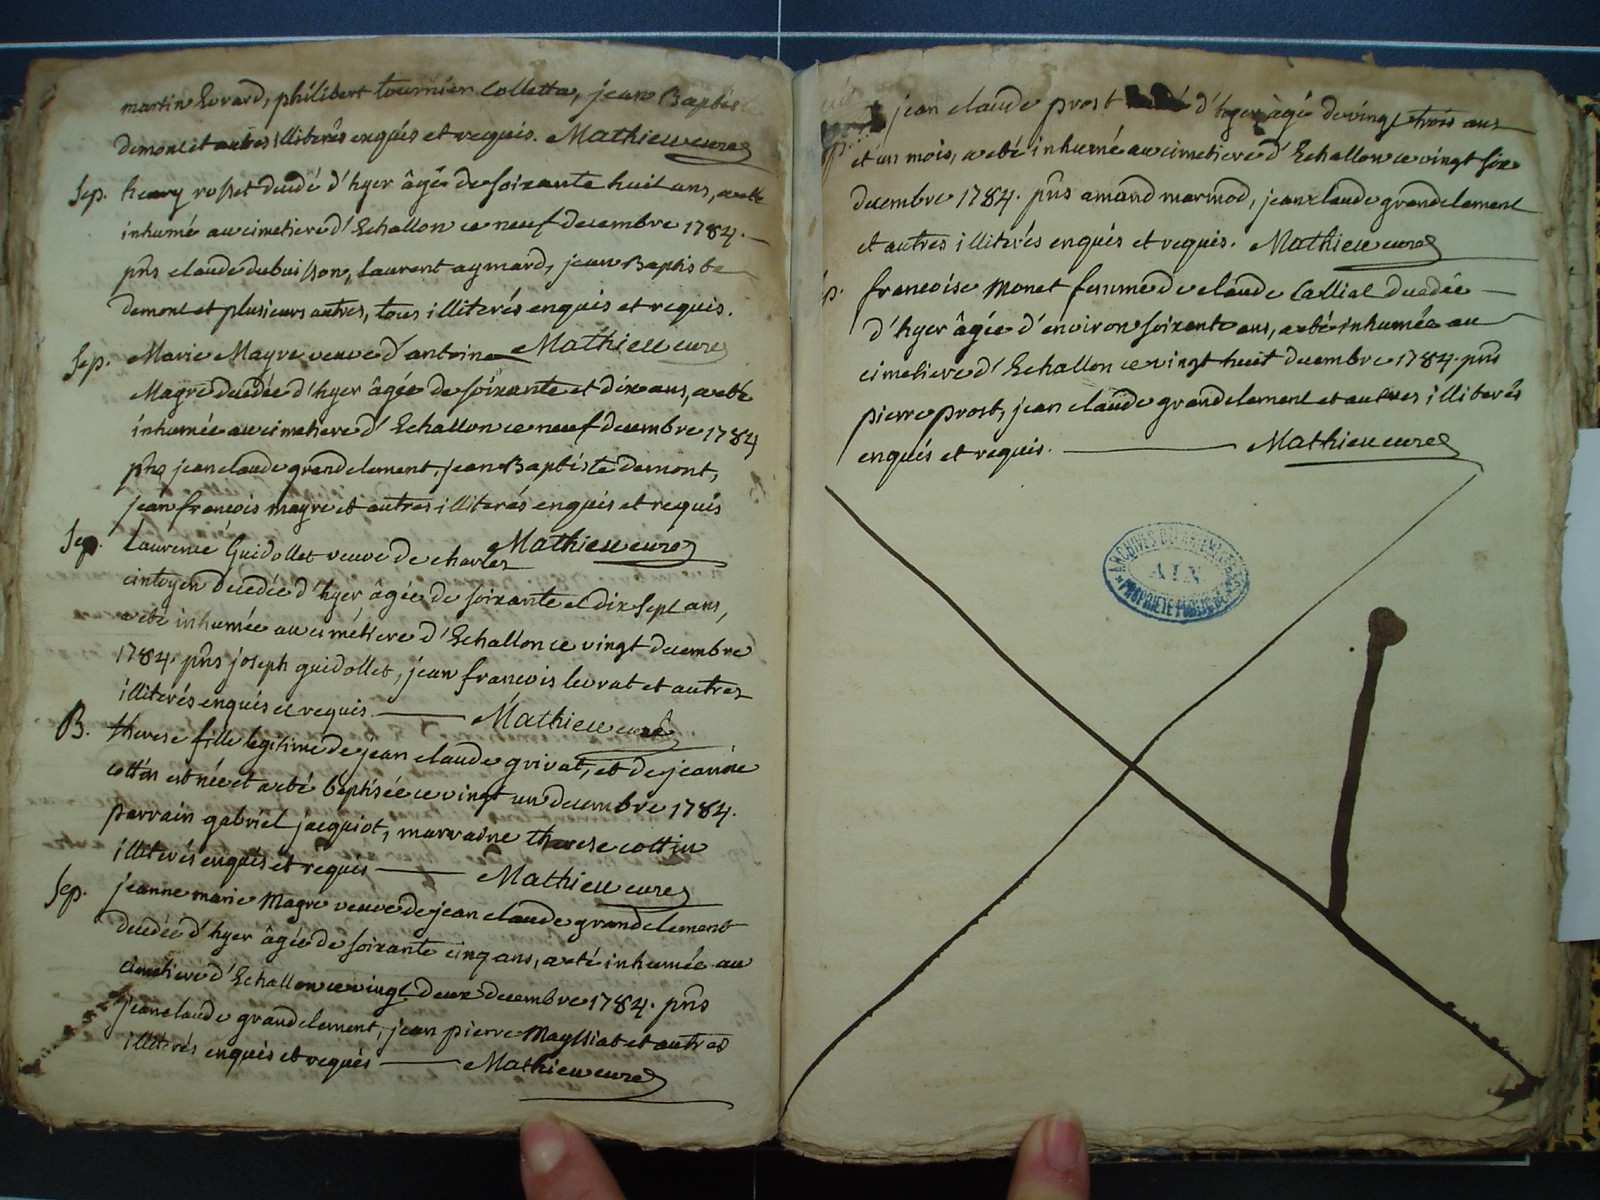 martin Evrard, philibert tournier Colletta, jean Baptiste
demont et autres illiterés enquis et requis. Mathieu curé
Sep. henry rosset decedé d'hyer âgée de soixante huit ans, a eté
inhumé au cimetiere d'Echallon ce neuf decembre 1784.
pñs claude dubuisson, laurent aymard, jean Baptiste
demont et plusieurs autres, tous illiterés enquis et requis.
Mathieu curé
Sep. Marie Magre veuve d'antoine
Magre decedée d'hyer âgée de soixante et dix ans, a eté
inhumée au cimetiere d'Echallon ce neuf decembre 1784
pñs jean claude grandclement, jean Baptiste demont,
jean francois magre et autres illiterés enquis et requis
Mathieu curé
Sep. Laurence Guidollet veuve de charles
cintoyen decedée d'hyer âgée de soixante et dix sept ans,
a eté inhumée au cimétiere d'Echallon ce vingt decembre
1784. pñs joseph guidollet, jean francois levrat et autres
illiterés enquis et requis Mathieu curé
B. therese fille legitime de jean claude grivat, et de jeanne
cottin est née et a eté baptisée ce vingt un decembre 1784.
parrain gabriel jacquiot, marraine therese cottin
illiterés enquis et requis Mathieu curé
Sep. jeanne marie Magre veuve de jean claude grandclement
decedée d'hyer âgée de soixante cinq ans, a eté inhumée au
cimetiere d'Echallon ce vingt deux decembre 1784. pñs
jean claude grandclement, jean pierre Maysiat et autres
illiterés enquis et requis Mathieu curé
jean claude prost d'hyer âgé de vingt trois ans
et un mois, a eté inhumé au cimetiere d'Echallon ce vingt six
decembre 1784. pñs amand marmod, jean claude grandclement
et autres illiterés enquis et requis. Mathieu curé
francoise Monet femme de claude Calliat decedée
d'hyer âgée d'environ soixante ans, a eté inhumée au
cimetiere d'Echallon ce vingt huit decembre 1784. pñs
pierre prost, jean claude grandclement et autres illiterés
enquis et requis. Mathieu curé
ARCHIVES DEPARTEMENTALES
AIN
PROPRIETE PUBLIQUE